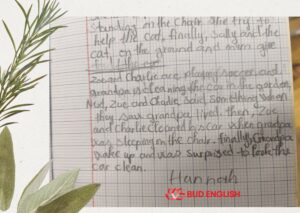 standing on the chair. She try to
help the cat, finally, Sally and the
cat, on the ground and mum give
Zoe and Charlie are playing soccer, and
grandpa is cleaning the car in the garden.
Next, Zoe and Charlie said something when
they saw grandpa tired. then, Zoe
and Charlie cleaned car when grandpa
was sleeping on the chair. finally, Grandpa
wake up and was surprised to look the
car clean.
Hannah
BUD ENGLISH